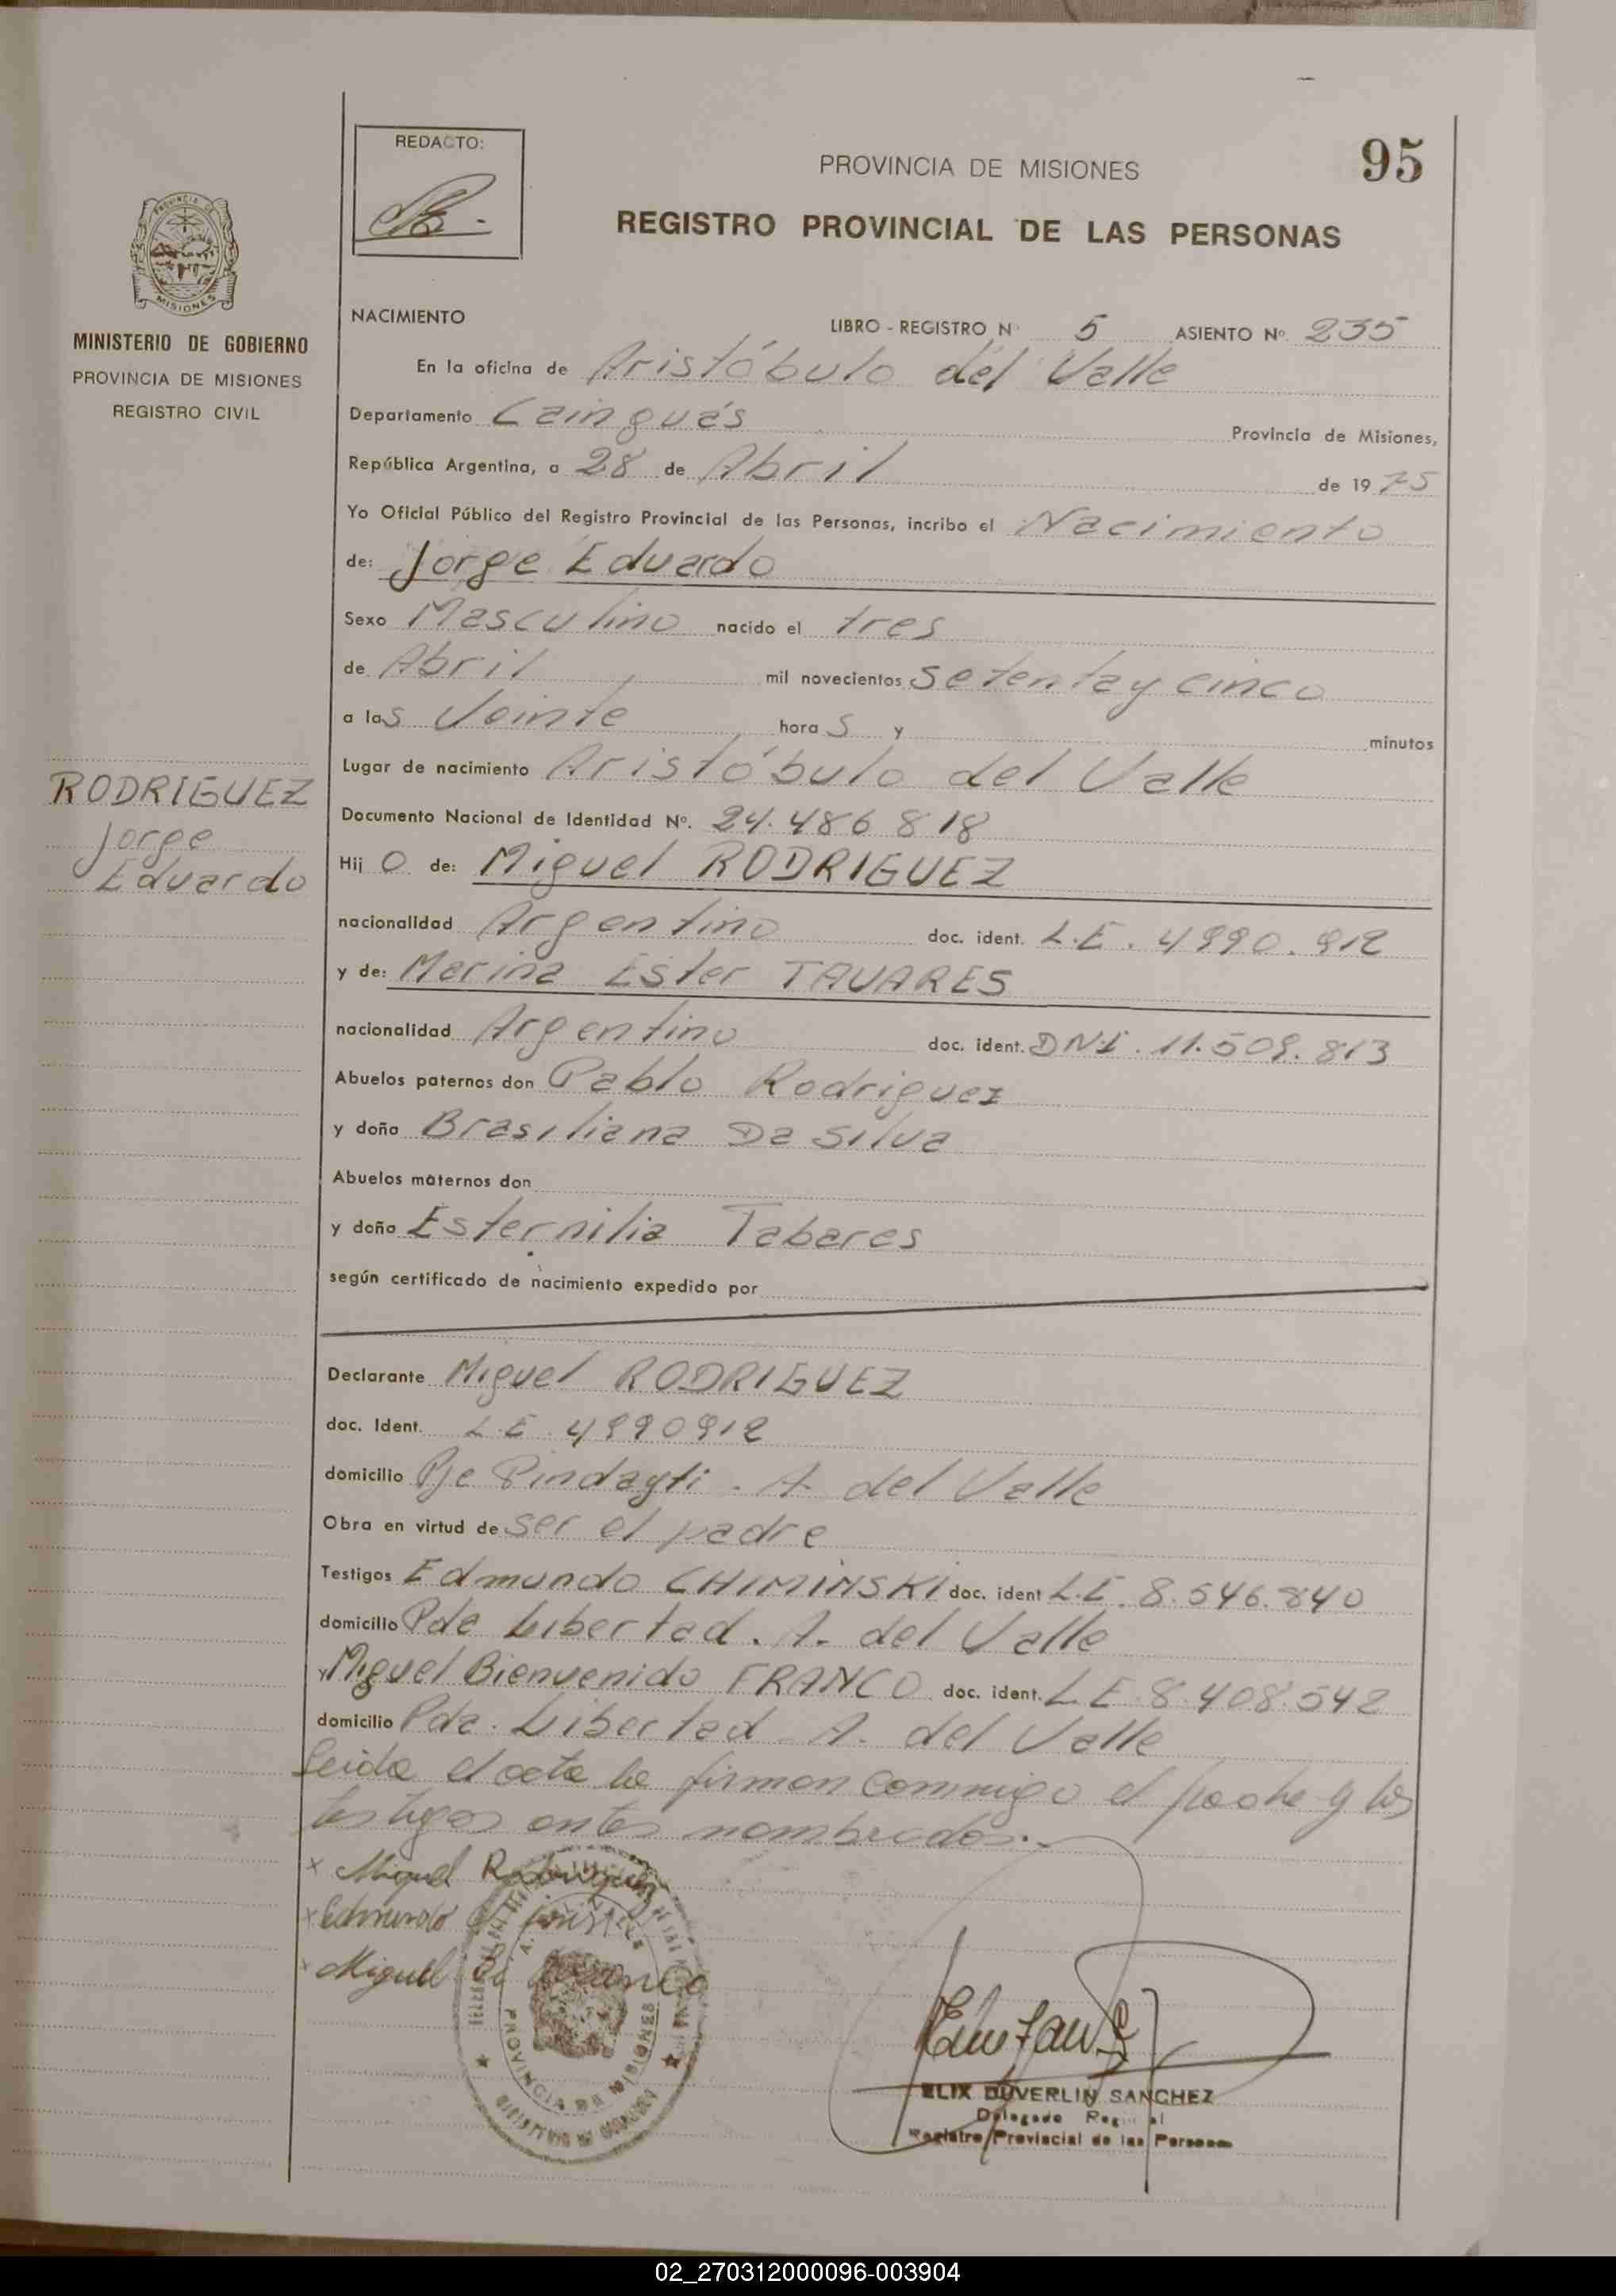 REDACTO:
95
PROVINCIA DE MISIONES
REGISTRO PROVINCIAL DE LAS PERSONAS
MISIONES
MINISTERIO DE GOBIERNO
PROVINCIA DE MISIONES
REGISTRO CIVIL
NACIMIENTO
LIBRO - REGISTRO Nº 5 ASIENTO Nº 235
En la oficina de Aristóbulo del Valle
Departamento Cainguás Provincia de Misiones,
República Argentina, a 28 de Abril de 1975
Yo Oficial Público del Registro Provincial de las Personas, incribo el Nacimiento
de: Jorge Eduardo
Sexo Masculino nacido el tres
de Abril mil novecientos setenta y cinco
a las Veinte horas y minutos
Lugar de nacimiento Aristóbulo del Valle
RODRIGUEZ
Jorge
Eduardo
Documento Nacional de Identidad Nº. 24.486 818
Hijo de: Miguel RODRIGUEZ
nacionalidad Argentino doc. ident. L.E. 4990.912
y de: Marina Ester TAVARES
nacionalidad Argentino doc. ident. DNI. 11.509.813
Abuelos paternos don Pablo Rodriguez
y doña Brasiliana Da Silva
Abuelos maternos don
y doña Esternilia Tabares
según certificado de nacimiento expedido por
Declarante Miguel RODRIGUEZ
doc. Ident. L.E. 4990912
domicilio Pje Pindayti. A. del Valle
Obra en virtud de ser el padre
Testigos Edmundo CHIMINSKI doc. ident L.E. 8.546.840
domicilio Pda Libertad. A. del Valle
y Miguel Bienvenido FRANCO doc. ident. L.E. 8.408.542
domicilio Pda. Libertad A. del Valle
Leida el acta la firman conmigo el padre y los
testigos antes nombrados.-
x Miguel Rodriguez
x Edmundo
x Miguel B. Franco
PROVINCIA DE MISIONES
ELIX DUVERLIN SANCHEZ
Delegado
Registro Provincial de las Personas
02_270312000096-003904